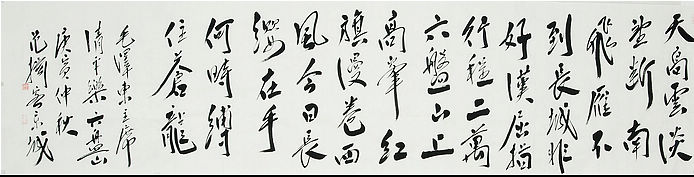 天高雲淡
望斷南
飛雁不
到長城非
好漢屈指
行程二萬
六盤山上
高峯紅
旗漫卷西
風今日長
纓在手
何時縛
住蒼龍
毛澤東主席
清平樂六盤山
庚寅仲秋
京城